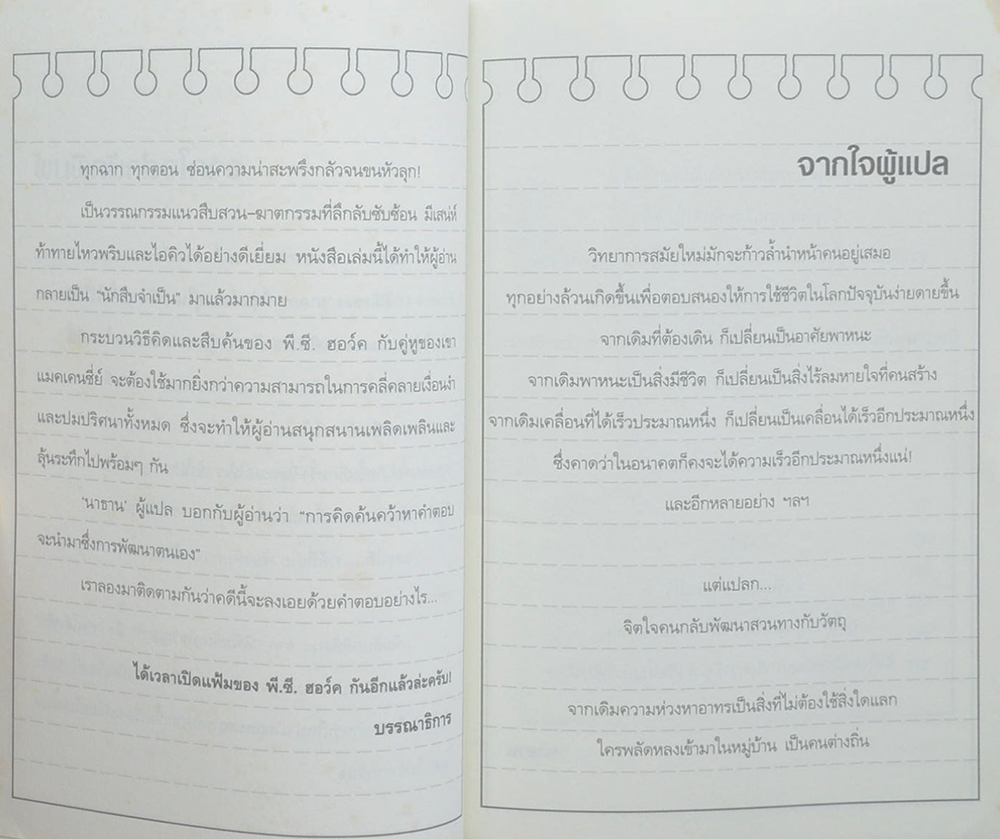 ทุกฉาก ทุกตอน ซ่อนความน่าสะพรึงกลัวจนขนหัวลุก!
เป็นวรรณกรรมแนวสืบสวน-ฆาตกรรมที่ลึกลับซับซ้อน มีเสน่ห์
ท้าทายไหวพริบและไอคิวได้อย่างดีเยี่ยม หนังสือเล่มนี้ได้ทำให้ผู้อ่าน
กลายเป็น "นักสืบจำเป็น" มาแล้วมากมาย
กระบวนวิธีคิดและสืบค้นของ พี.ซี. ฮอว์ค กับคู่หูของเขา
แมคเคนซี่ย์ จะต้องใช้มากยิ่งกว่าความสามารถในการคลี่คลายเงื่อนงำ
และปมปริศนาทั้งหมด ซึ่งจะทำให้ผู้อ่านสนุกสนานเพลิดเพลินและ
ลุ้นระทึกไปพร้อมๆ กัน
'นาธาน' ผู้แปล บอกกับผู้อ่านว่า "การคิดค้นคว้าหาคำตอบ
จะนำมาซึ่งการพัฒนาตนเอง"
เราลองมาติดตามกันว่าคดีนี้จะลงเอยด้วยคำตอบอย่างไร...
ได้เวลาเปิดแฟ้มของ พี.ซี. ฮอว์ค กันอีกแล้วล่ะครับ!
บรรณาธิการ
จากใจผู้แปล
วิทยาการสมัยใหม่มักจะก้าวล้ำนำหน้าคนอยู่เสมอ
ทุกอย่างล้วนเกิดขึ้นเพื่อตอบสนองให้การใช้ชีวิตในโลกปัจจุบันง่ายดายขึ้น
จากเดิมที่ต้องเดิน ก็เปลี่ยนเป็นอาศัยพาหนะ
จากเดิมพาหนะเป็นสิ่งมีชีวิต ก็เปลี่ยนเป็นสิ่งไร้ลมหายใจที่คนสร้าง
จากเดิมเคลื่อนที่ได้เร็วประมาณหนึ่ง ก็เปลี่ยนเป็นเคลื่อนได้เร็วอีกประมาณหนึ่ง
ซึ่งคาดว่าในอนาคตก็คงจะได้ความเร็วอีกประมาณหนึ่งแน่!
และอีกหลายอย่าง ฯลฯ
แต่แปลก...
จิตใจคนกลับพัฒนาสวนทางกับวัตถุ
จากเดิมความห่วงหาอาทรเป็นสิ่งที่ไม่ต้องใช้สิ่งใดแลก
ใครพลัดหลงเข้ามาในหมู่บ้าน เป็นคนต่างถิ่น